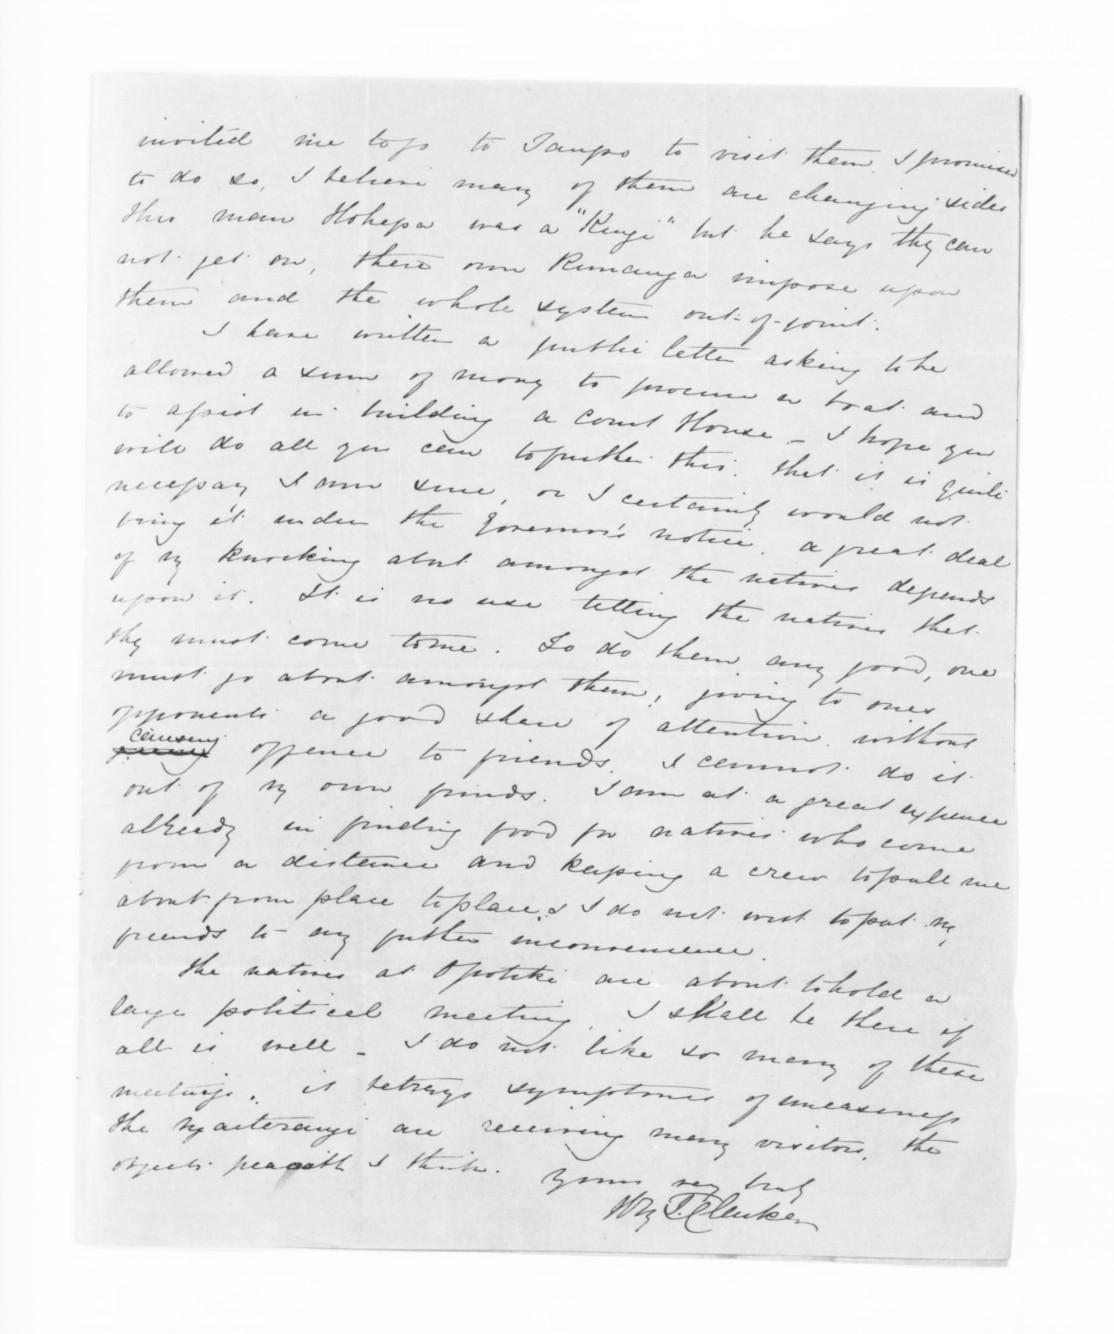 invited me to go to Taupo to visit them. I promised
to do so, I believe many of them are changing sides
this man Hohepa was a "Kingi" but he says they can
not get on, there own Runanga impose upon
them and the whole system out-of-joint.
I have written a public letter asking to be
allowed a sum of money to procure a boat and
to assist in building a Court House - I hope you
will do all you can to further this. that it is quite
necessary I am sure, or I certainly would not
bring it under the Governor's notice. a great deal
of my knocking about amongst the natives depends
upon it. It is no use telling the natives that
they must come to me. To do them any good, one
must go about amongst them, giving to ones
opponents a good share of attention without
causing offence to friends. I cannot do it
out of my own funds. I am at a great expence
already in finding food for natives who come
from a distance and keeping a crew to pull me
about from place to place, & I do not wish to put my
friends to any further inconvenience.
The natives at Opotiki are about to hold a
large political meeting. I shall be there if
all is well - I do not like so many of these
meetings. it betrays symptoms of uneasiness
the Ngaiterangi are receiving many visitors, the
objects peaceable I think.
Yours very truly
H T. Clarke